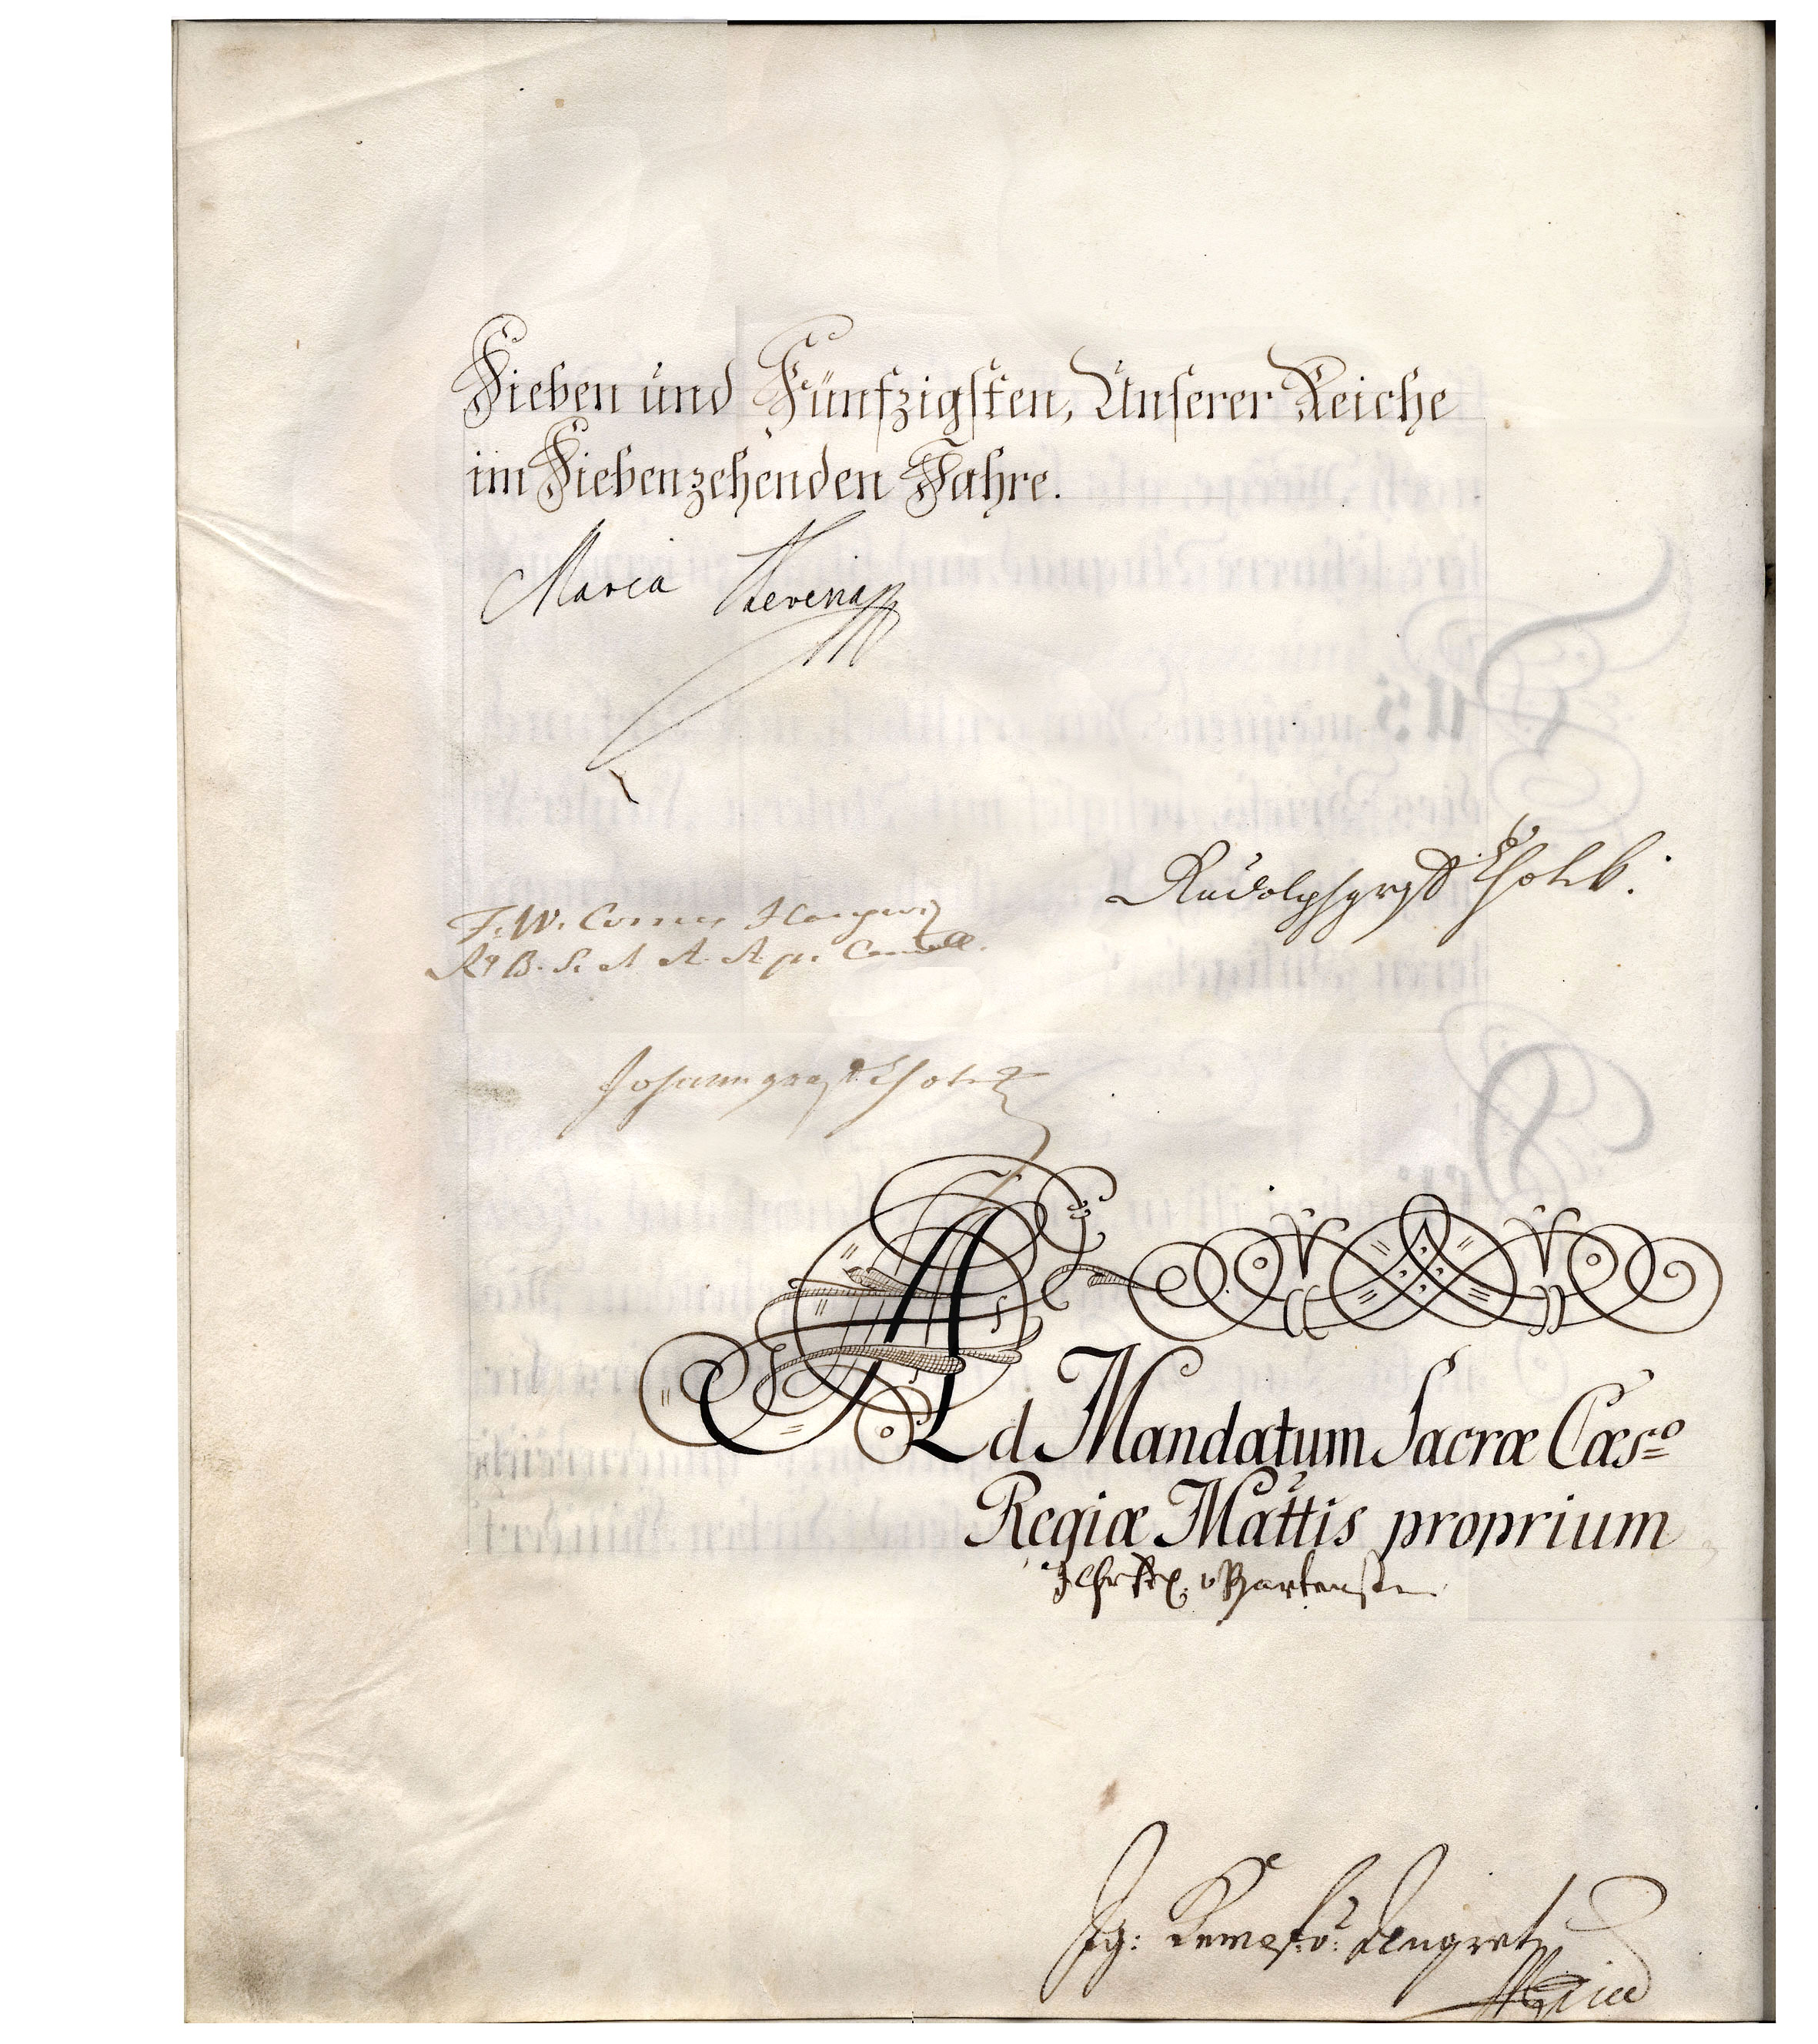 Sieben und Fünfzigsten, Unserer Reiche
im Siebenzehenden Jahre.
Maria Theresia
Rudolph graff Chotek.
F. W. Comes Haugwiz
Rs B. S. et A. A. p. Cancell.
Johann graff Chotek
Ad Mandatum Sacræ Cæs:º
Regiæ Mattis proprium
v Bartenstein